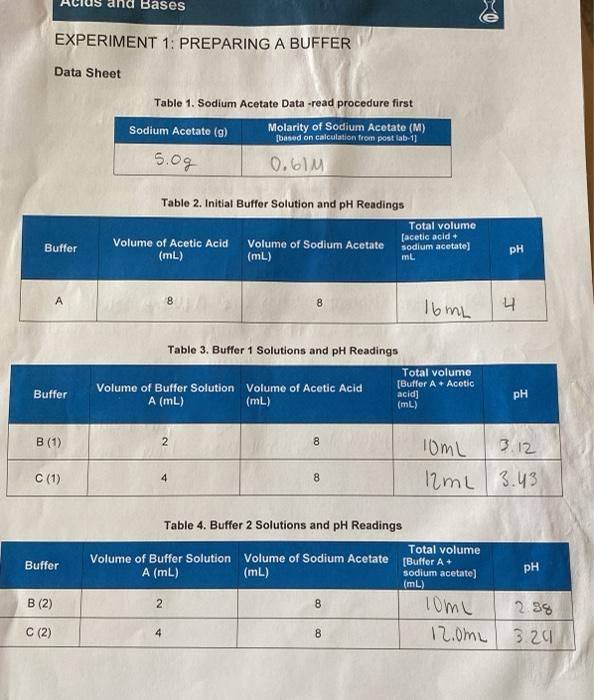 Acids and Bases
EXPERIMENT 1: PREPARING A BUFFER
Data Sheet
Table 1. Sodium Acetate Data -read procedure first
Sodium Acetate (g)
Molarity of Sodium Acetate (M)
[based on calculation from post lab-1]
5.0g
0.61M
Table 2. Initial Buffer Solution and pH Readings
Buffer
Volume of Acetic Acid
(mL)
Volume of Sodium Acetate
(mL)
Total volume
[acetic acid +
sodium acetate]
mL
pH
A
8
8
16mL
4
Table 3. Buffer 1 Solutions and pH Readings
Buffer
Volume of Buffer Solution
A (mL)
Volume of Acetic Acid
(mL)
Total volume
[Buffer A + Acetic
acid]
(mL)
pH
B (1)
2
8
10mL
3.12
C (1)
4
8
12mL
3.43
Table 4. Buffer 2 Solutions and pH Readings
Buffer
Volume of Buffer Solution
A (mL)
Volume of Sodium Acetate
(mL)
Total volume
[Buffer A +
sodium acetate]
(mL)
pH
B (2)
2
8
10mL
C (2)
4
8
12.0mL